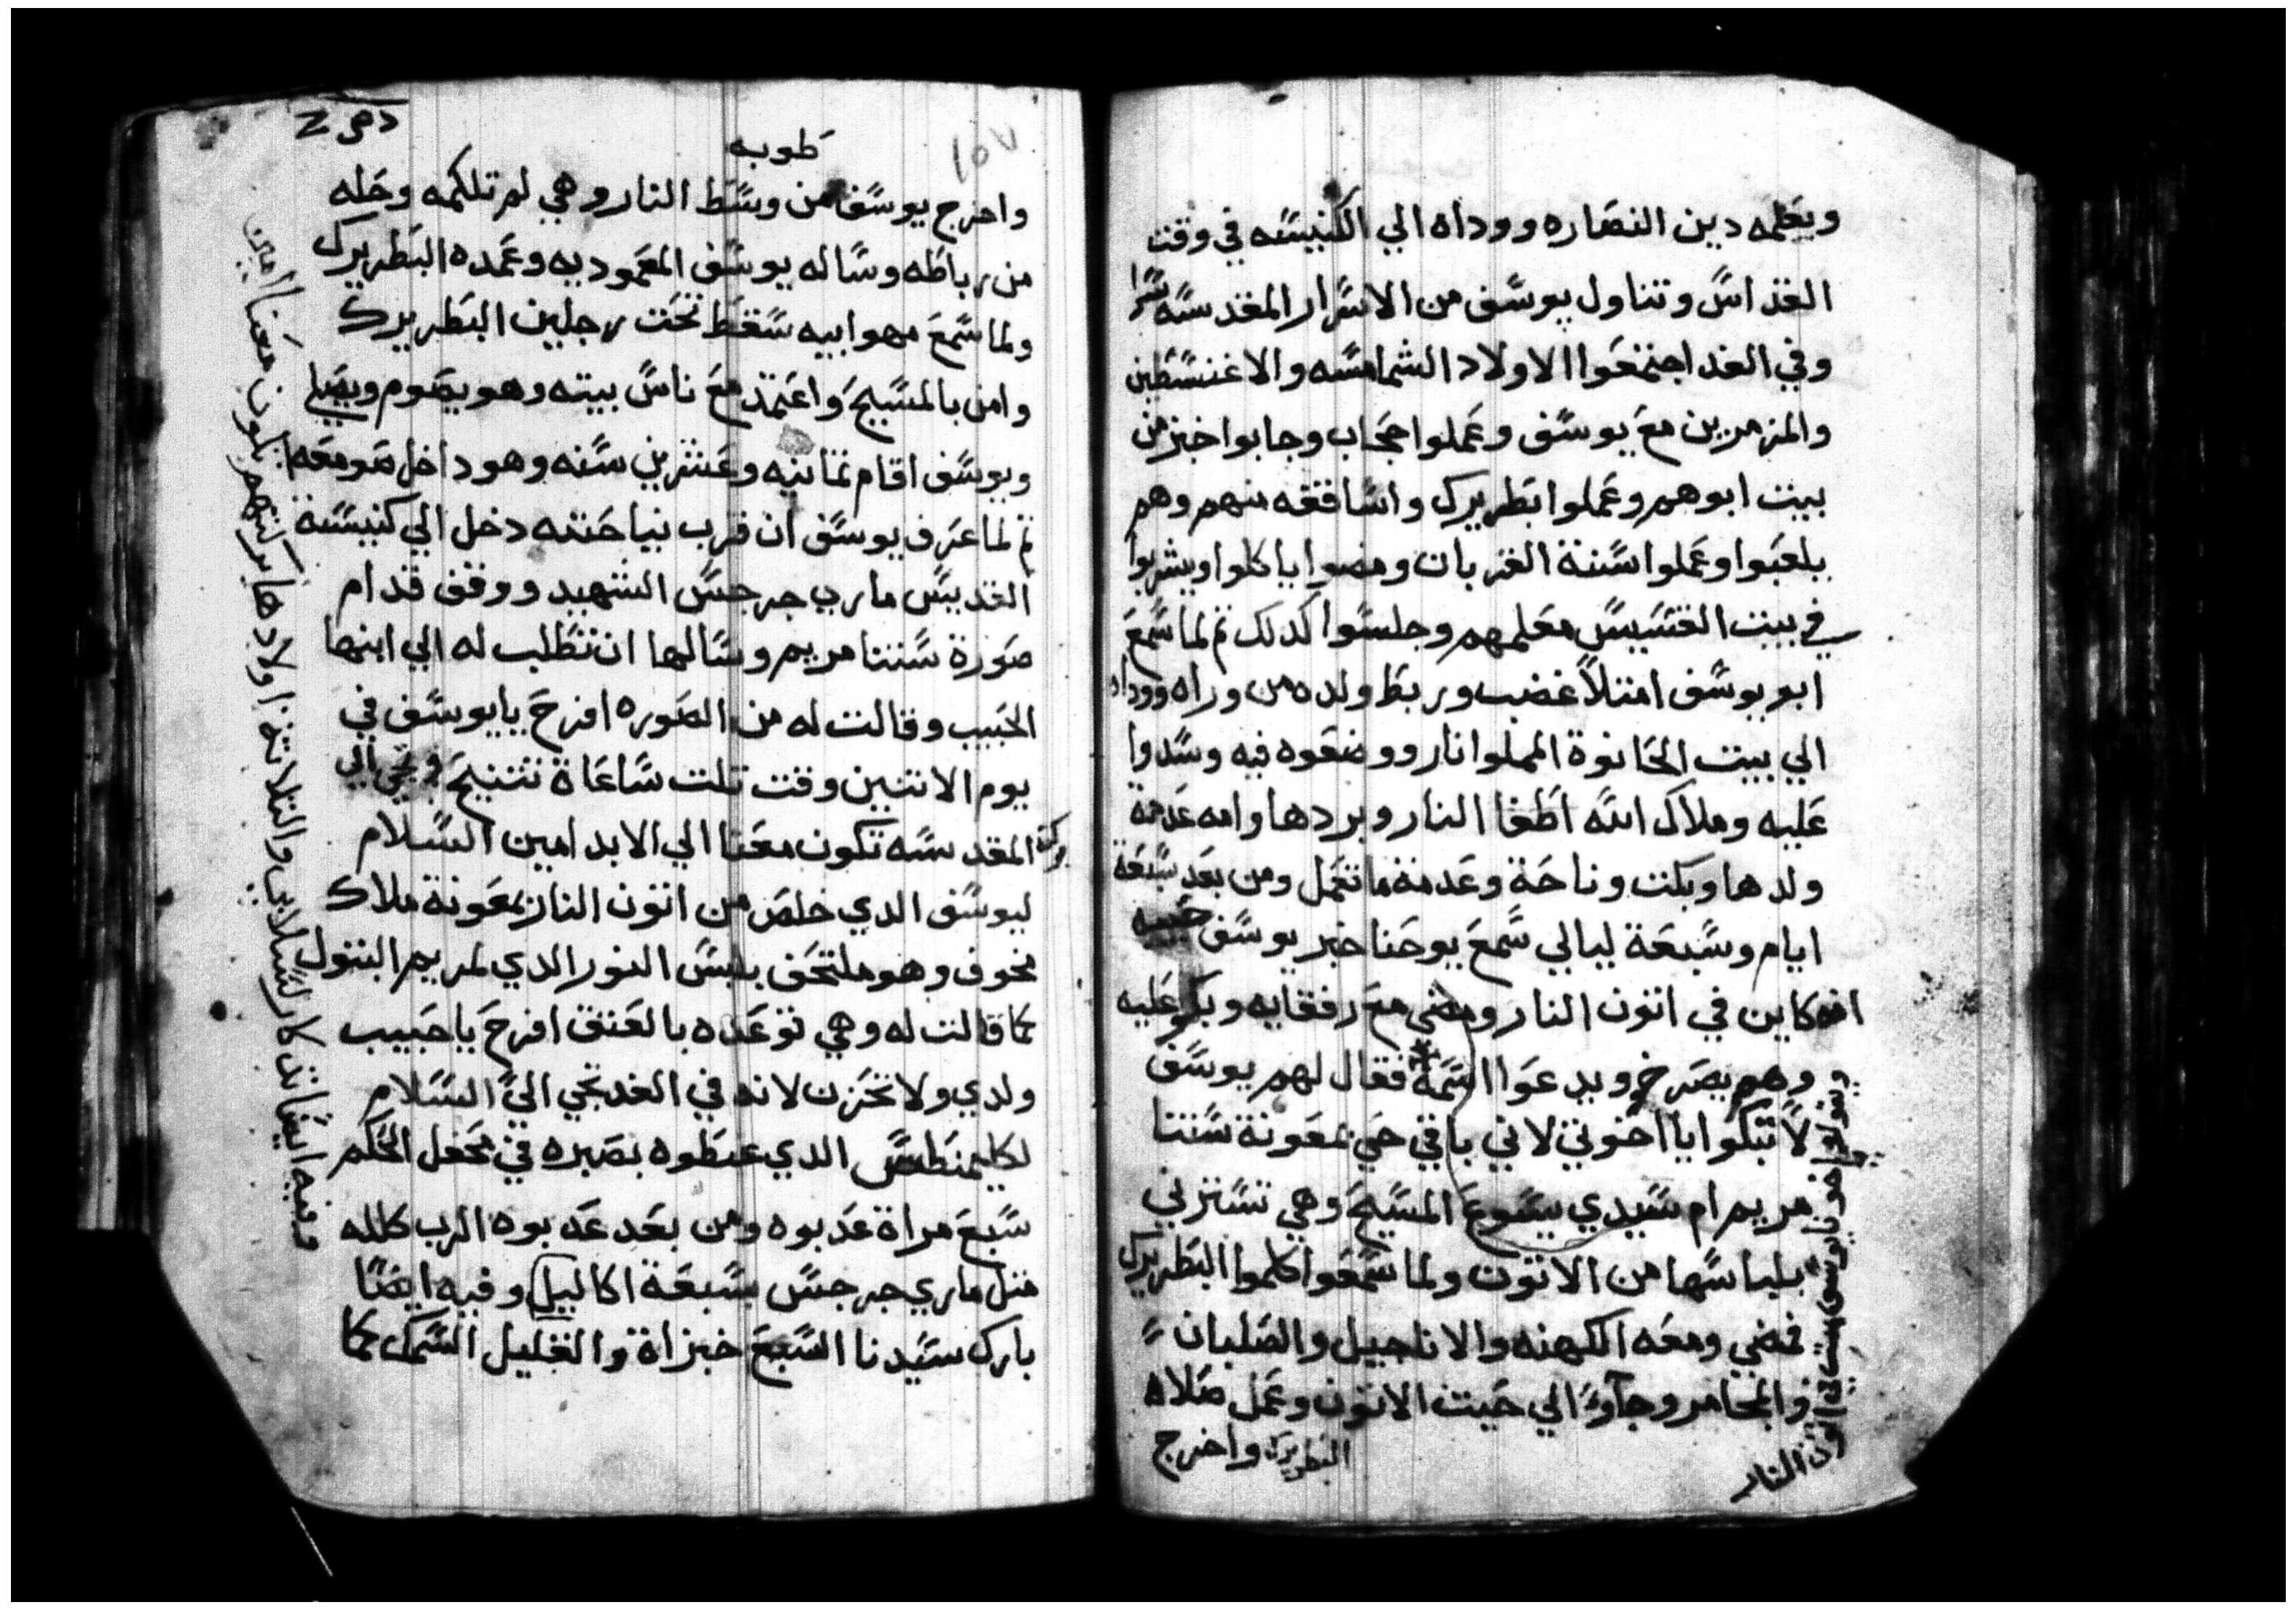 ويعلمه دين النصاره ووداه الي الكنيسه في وقت
القداس وتناول يوسف من الاسرار المقدسه سرا
وفي الغد اجتمعوا الاولاد الشمامسه والاغنسطين
والمزمرين مع يوسف وعملوا حجاب وجابوا خبز من
بيت ابوهم وعملوا بطريرك واساقفه منهم وهم
يلعبوا وعملوا سنة القربان ومضوا ياكلوا ويشربوا
في بيت القسيس معلمهم وجلسوا كدلك ثم لما سمع
ابو يوسف امتلا غضب وربط ولده من وراه ووداه
الي بيت الحانوة المملوا نار ووضعوه فيه وسدوا
عليه وملاك الله اطفا النار وبردها وامه عدمة
ولدها وبكت وناحة وعدمة ما تعمل ومن بعد سبعة
ايام وسبعة ليالي سمع يوحنا خبر يوسف حبيبه
انه كاين في اتون النار ومضي مع رفقايه وبكو عليه
وهم بصرخ ويدعوا اسمه فقال لهم يوسف
لا تبكوا يا اخوتي لاني باقي حي بمعونة ستنا
مريم ام سيدي يسوع المسيح وهي تسترني
بلباسها من الاتون ولما سمعوا كلموا البطريرك
فمضي ومعه الكهنه والاناجيل والصلبان
والمجامر وجاوا الي حيث الاتون وعمل صلاه
البطريرك واخرج
ويقولو اخونا يوسف في اتون النار
طوبه
١٥٧
واخرج يوسف من وسط النار وهي لم تلكمه وحله
من رباطه وساله يوسف المعموديه وعمده البطريرك
ولما سمع مهو ابيه سقط تحت رجلين البطريرك
وامن بالمسيح واعتمد مع ناس بيته وهو يصوم ويصلي
ويوسف اقام تمانيه وعشرين سنه وهو داخل صومعه
ثم لما عرف يوسف ان قرب نياحته دخل الي كنيسة
القديس ماري جرجس الشهيد ووقف قدام
صورة ستنا مريم وسالها ان تطلب له الي ابنها
الحبيب وقالت له من الصوره افرح يا يوسف في
يوم الاتنين وقت تلت ساعاة تتنيح وتجي الي
بركته المقدسه تكون معنا الي الابد امين السلام
ليوسف الدي خلص من اتون النار بمعونة ملاك
مخوف وهو ملتحف بلبس النور الدي لمريم البتول
كما قالت له وهي توعده بالعتق افرح يا حبيب
ولدي ولا تحزن لانه في الغد تجي الي السلام
لكليمنطس الدي عيطوه بصبره في محفل الحكم
سبع مراة عدبوه ومن بعد عدبوه الرب كلله
متل ماري جرجس بسبعة اكاليل وفيه ايضا
بارك سيدنا السبع خبزاة والقليل السمك كما
وفيه ايضا تدكار سلابي والتلاته اولادها بركتهم تكون معنا امين